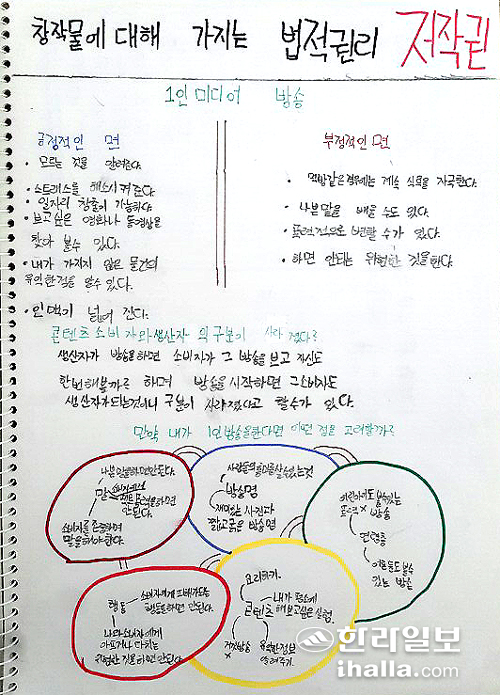 창작물에 대해 가지는 법적권리 저작권
1인 미디어 방송
긍정적인 면
• 모르는 것을 알려준다.
• 스트레스를 해소시켜 준다.
• 일자리 창출이 가능하다.
• 보고싶은 영화나 동영상을
찾아 볼수 있다.
• 내가 가지지 않은 물건의
유익한점을 알수 있다.
• 인맥이 넓어 진다.
부정적인 면
• 먹방같은경우에는 계속 식욕을 자극한다.
• 나쁜말을 배울 수도 있다.
• 폭력적으로 변할 수가 있다.
• 하면 안되는 위험한 것을한다.
콘텐츠 소비자와 생산자의 구분이 사라졌다?
생산자가 방송을하면 소비자가 그 방송을 보고 자신도
한번해볼까? 하며 방송을 시작하면 그소비자도
생산자가되는것이니 구분이 사라졌다고 할수가 있다.
만약 내가 1인방송을한다면 어떤 점을 고려할까?
나쁜말을하면안된다.
말
안된다.
소비자를 존중하며
말을해야한다.
방송명
재미있는 사진과
짧고굵은 방송명
방송
연령층
어른들도볼수
있는 방송
행동
소비자에게 피해가되는
행동을하면 안된다.
나와소비자에게
위험한 것을하면 안된다.
요리하기.
콘텐츠
내가 평소에
해보고싶은 실험.
유익한정보
알려주기.
한라일보
ihalla.com